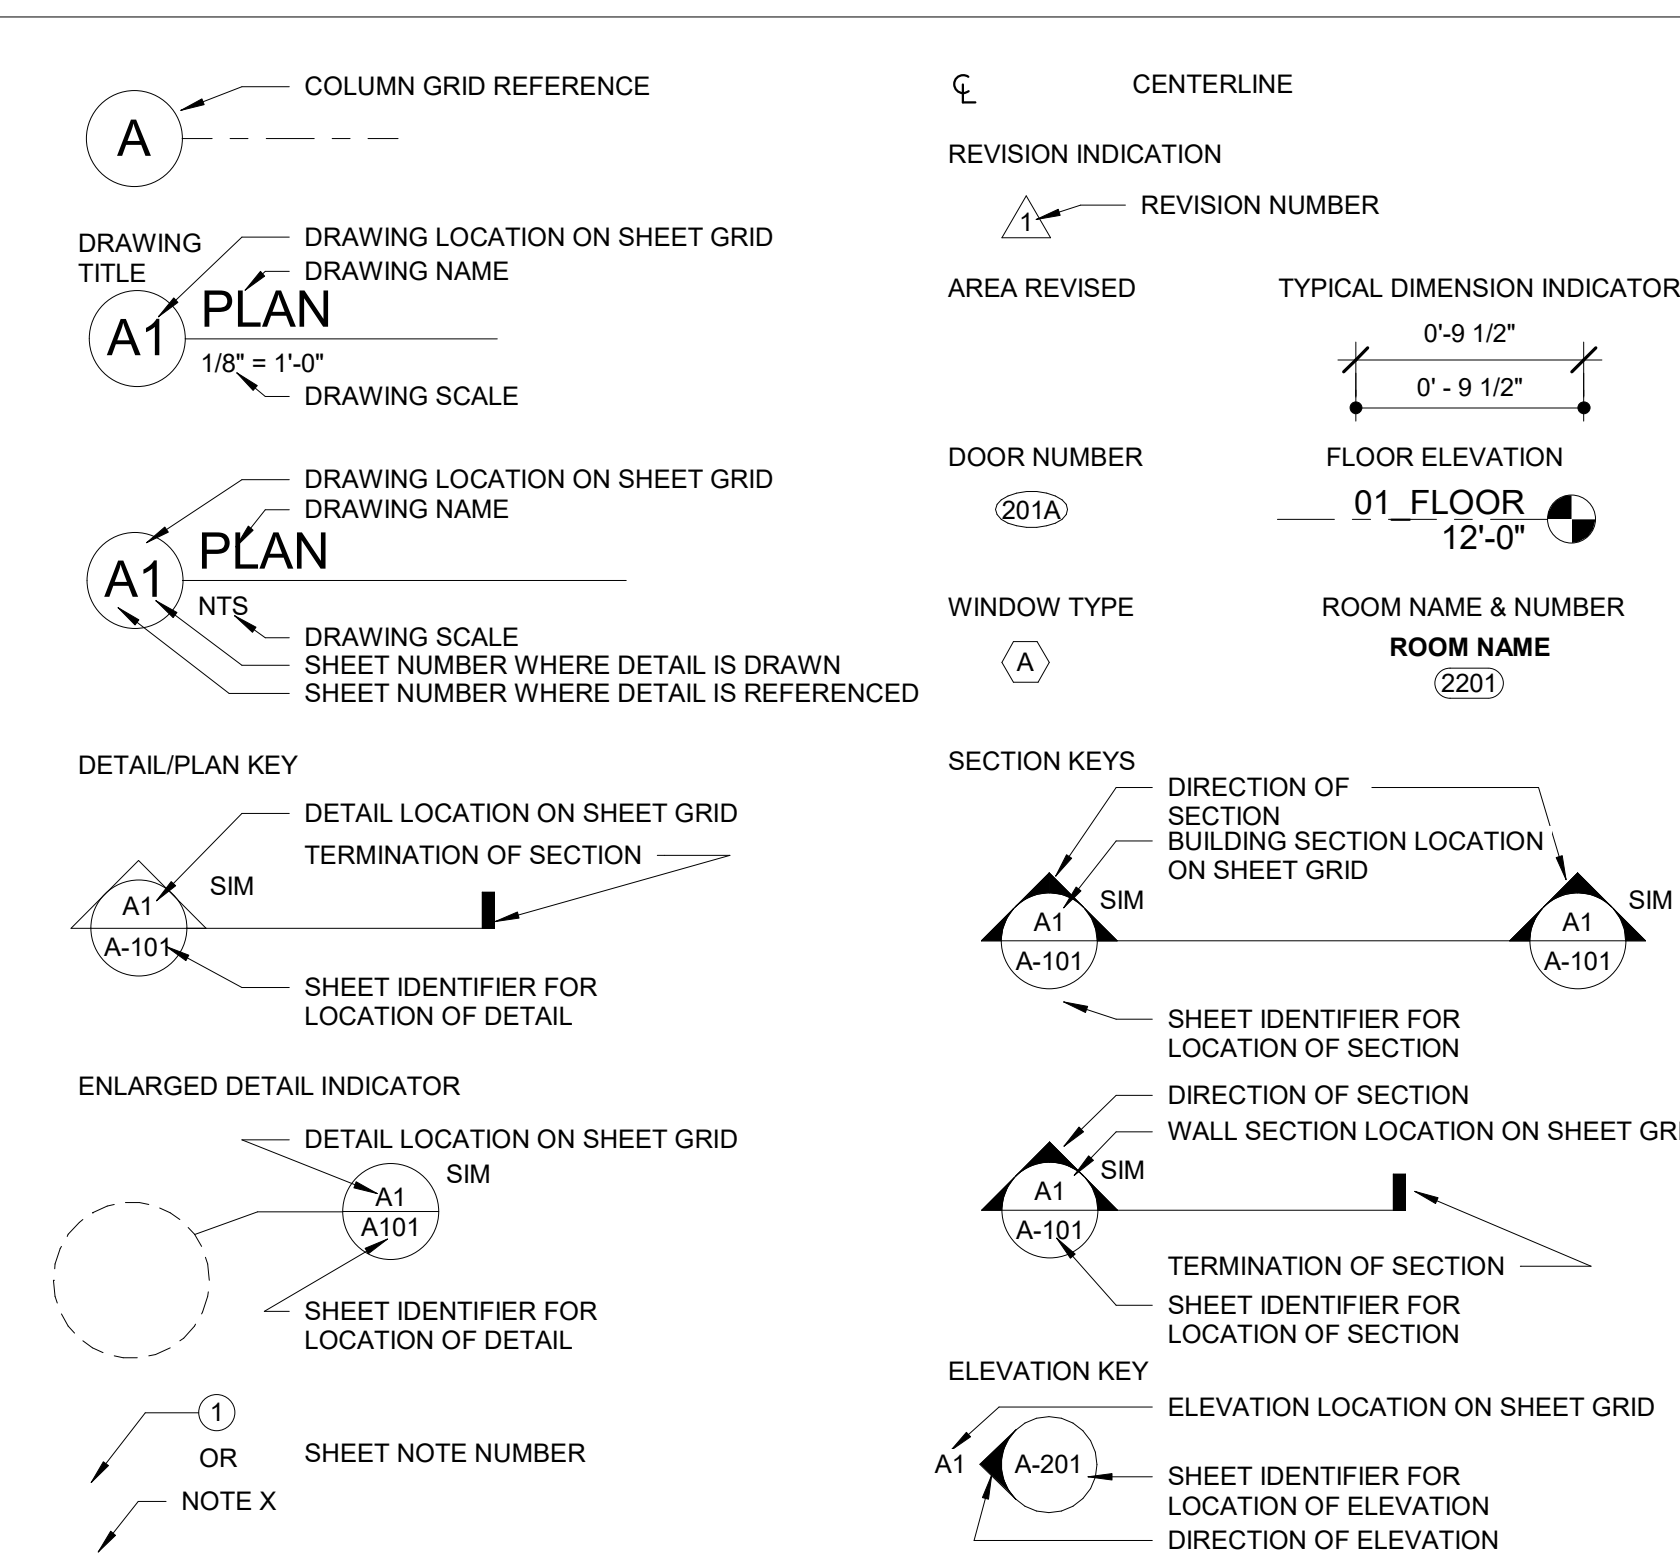 COLUMN GRID REFERENCE
A
DRAWING
TITLE
DRAWING LOCATION ON SHEET GRID
DRAWING NAME
PLAN
A1
1/8" = 1'-0"
DRAWING SCALE
DRAWING LOCATION ON SHEET GRID
DRAWING NAME
PLAN
A1
NTS
DRAWING SCALE
SHEET NUMBER WHERE DETAIL IS DRAWN
SHEET NUMBER WHERE DETAIL IS REFERENCED
DETAIL/PLAN KEY
DETAIL LOCATION ON SHEET GRID
TERMINATION OF SECTION
SIM
A1
A-101
SHEET IDENTIFIER FOR
LOCATION OF DETAIL
ENLARGED DETAIL INDICATOR
DETAIL LOCATION ON SHEET GRID
SIM
A1
A101
SHEET IDENTIFIER FOR
LOCATION OF DETAIL
1
OR
SHEET NOTE NUMBER
NOTE X
CL
CENTERLINE
REVISION INDICATION
1
REVISION NUMBER
AREA REVISED
TYPICAL DIMENSION INDICATOR
0'-9 1/2"
0' - 9 1/2"
DOOR NUMBER
201A
FLOOR ELEVATION
01_FLOOR
12'-0"
WINDOW TYPE
A
ROOM NAME & NUMBER
ROOM NAME
2201
SECTION KEYS
DIRECTION OF
SECTION
BUILDING SECTION LOCATION
ON SHEET GRID
SIM
SIM
A1
A1
A-101
A-101
SHEET IDENTIFIER FOR
LOCATION OF SECTION
DIRECTION OF SECTION
WALL SECTION LOCATION ON SHEET GRI
SIM
A1
A-101
TERMINATION OF SECTION
SHEET IDENTIFIER FOR
LOCATION OF SECTION
ELEVATION KEY
ELEVATION LOCATION ON SHEET GRID
A1
A-201
SHEET IDENTIFIER FOR
LOCATION OF ELEVATION
DIRECTION OF ELEVATION